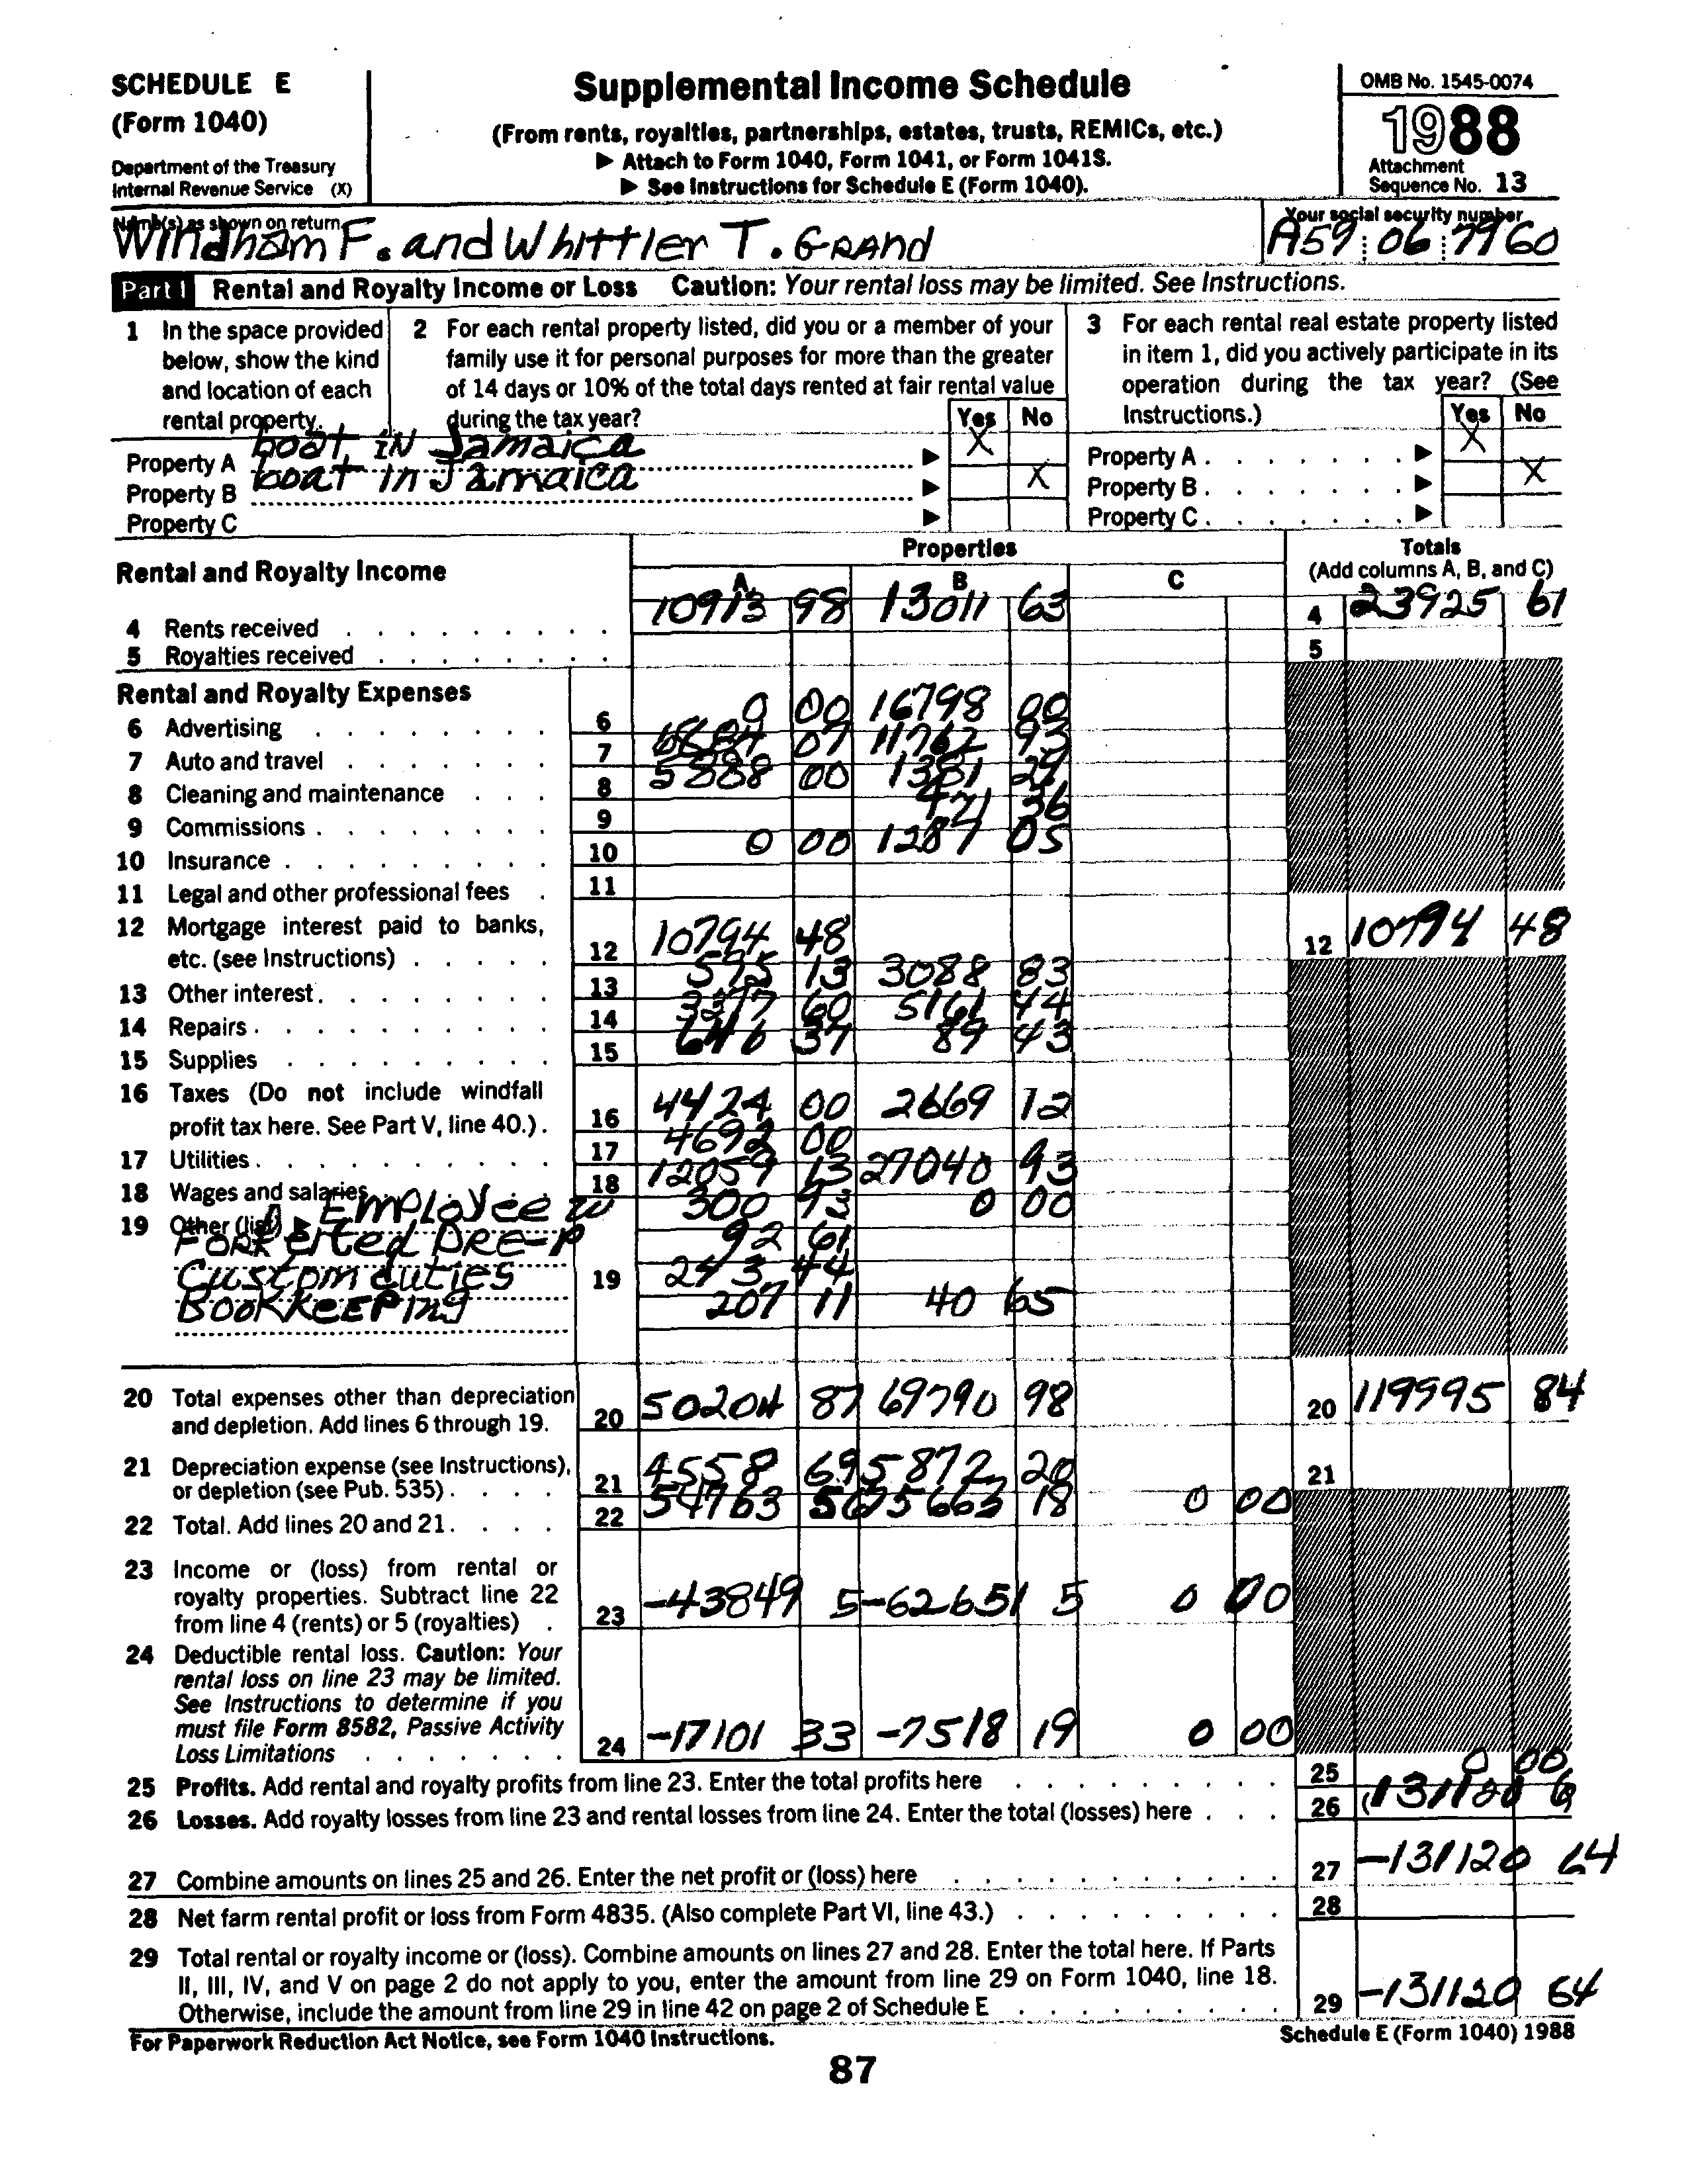 SCHEDULE E
(Form 1040)
Department of the Treasury
Internal Revenue Service (X)
Supplemental Income Schedule
(From rents, royalties, partnerships, estates, trusts, REMICs, etc.)
▶ Attach to Form 1040, Form 1041, or Form 1041S.
▶ See Instructions for Schedule E (Form 1040).
OMB No. 1545-0074
1988
Attachment
Sequence No. 13
Name(s) as shown on return
Windham F. and Whittier T. GRAnd
Your social security number
A59 06 7960
Part I Rental and Royalty Income or Loss Caution: Your rental loss may be limited. See Instructions.
1 In the space provided
below, show the kind
and location of each
rental property.
2 For each rental property listed, did you or a member of your
family use it for personal purposes for more than the greater
of 14 days or 10% of the total days rented at fair rental value
during the tax year?
Yes No
3 For each rental real estate property listed
in item 1, did you actively participate in its
operation during the tax year? (See
Instructions.)
Yes No
Property A boat IN Jamaica ▶ X
Property B boat in Jamaica ▶ X
Property C ▶
Property A ▶ X
Property B ▶ X
Property C ▶
Rental and Royalty Income
Properties
A B C
Totals
(Add columns A, B, and C)
4 Rents received 10913 98 13011 63 4 23925 61
5 Royalties received 5
Rental and Royalty Expenses
6 Advertising 6 0 00 16798 00
7 Auto and travel 7 07 11762 93
8 Cleaning and maintenance 8 5888 00 1381 29
9 Commissions 9 471 36
10 Insurance 10 0 00 1287 05
11 Legal and other professional fees 11
12 Mortgage interest paid to banks,
etc. (see Instructions) 12 10794 48 12 10794 48
13 Other interest 13 595 13 3088 83
14 Repairs 14 3277 60 5161 44
15 Supplies 15 646 37 89 43
16 Taxes (Do not include windfall
profit tax here. See Part V, line 40.) 16 4424 00 2669 12
17 Utilities 17 4692 00
18 Wages and salaries 18 12059 13 27040 93
19 Other (list) ▶ EMPLOYee W 300 93 0 00
PRE-P 92 61
Custom duties 19 44
BOOKKEEPing 207 11 40 65
20 Total expenses other than depreciation
and depletion. Add lines 6 through 19. 20 50204 87 69790 98 20 119995 84
21 Depreciation expense (see Instructions),
or depletion (see Pub. 535) 21 4558 69 5872 20 21
22 Total. Add lines 20 and 21. 22 54763 56 75663 18 0 00
23 Income or (loss) from rental or
royalty properties. Subtract line 22
from line 4 (rents) or 5 (royalties) 23 -43849 5 -62651 5 0 00
24 Deductible rental loss. Caution: Your
rental loss on line 23 may be limited.
See Instructions to determine if you
must file Form 8582, Passive Activity
Loss Limitations 24 -17101 33 -7518 19 0 00
25 Profits. Add rental and royalty profits from line 23. Enter the total profits here 25 0 00
26 Losses. Add royalty losses from line 23 and rental losses from line 24. Enter the total (losses) here 26 (131120 6)
27 Combine amounts on lines 25 and 26. Enter the net profit or (loss) here 27 -131120 64
28 Net farm rental profit or loss from Form 4835. (Also complete Part VI, line 43.) 28
29 Total rental or royalty income or (loss). Combine amounts on lines 27 and 28. Enter the total here. If Parts
II, III, IV, and V on page 2 do not apply to you, enter the amount from line 29 on Form 1040, line 18.
Otherwise, include the amount from line 29 in line 42 on page 2 of Schedule E 29 -131120 64
For Paperwork Reduction Act Notice, see Form 1040 Instructions.
Schedule E (Form 1040) 1988
87